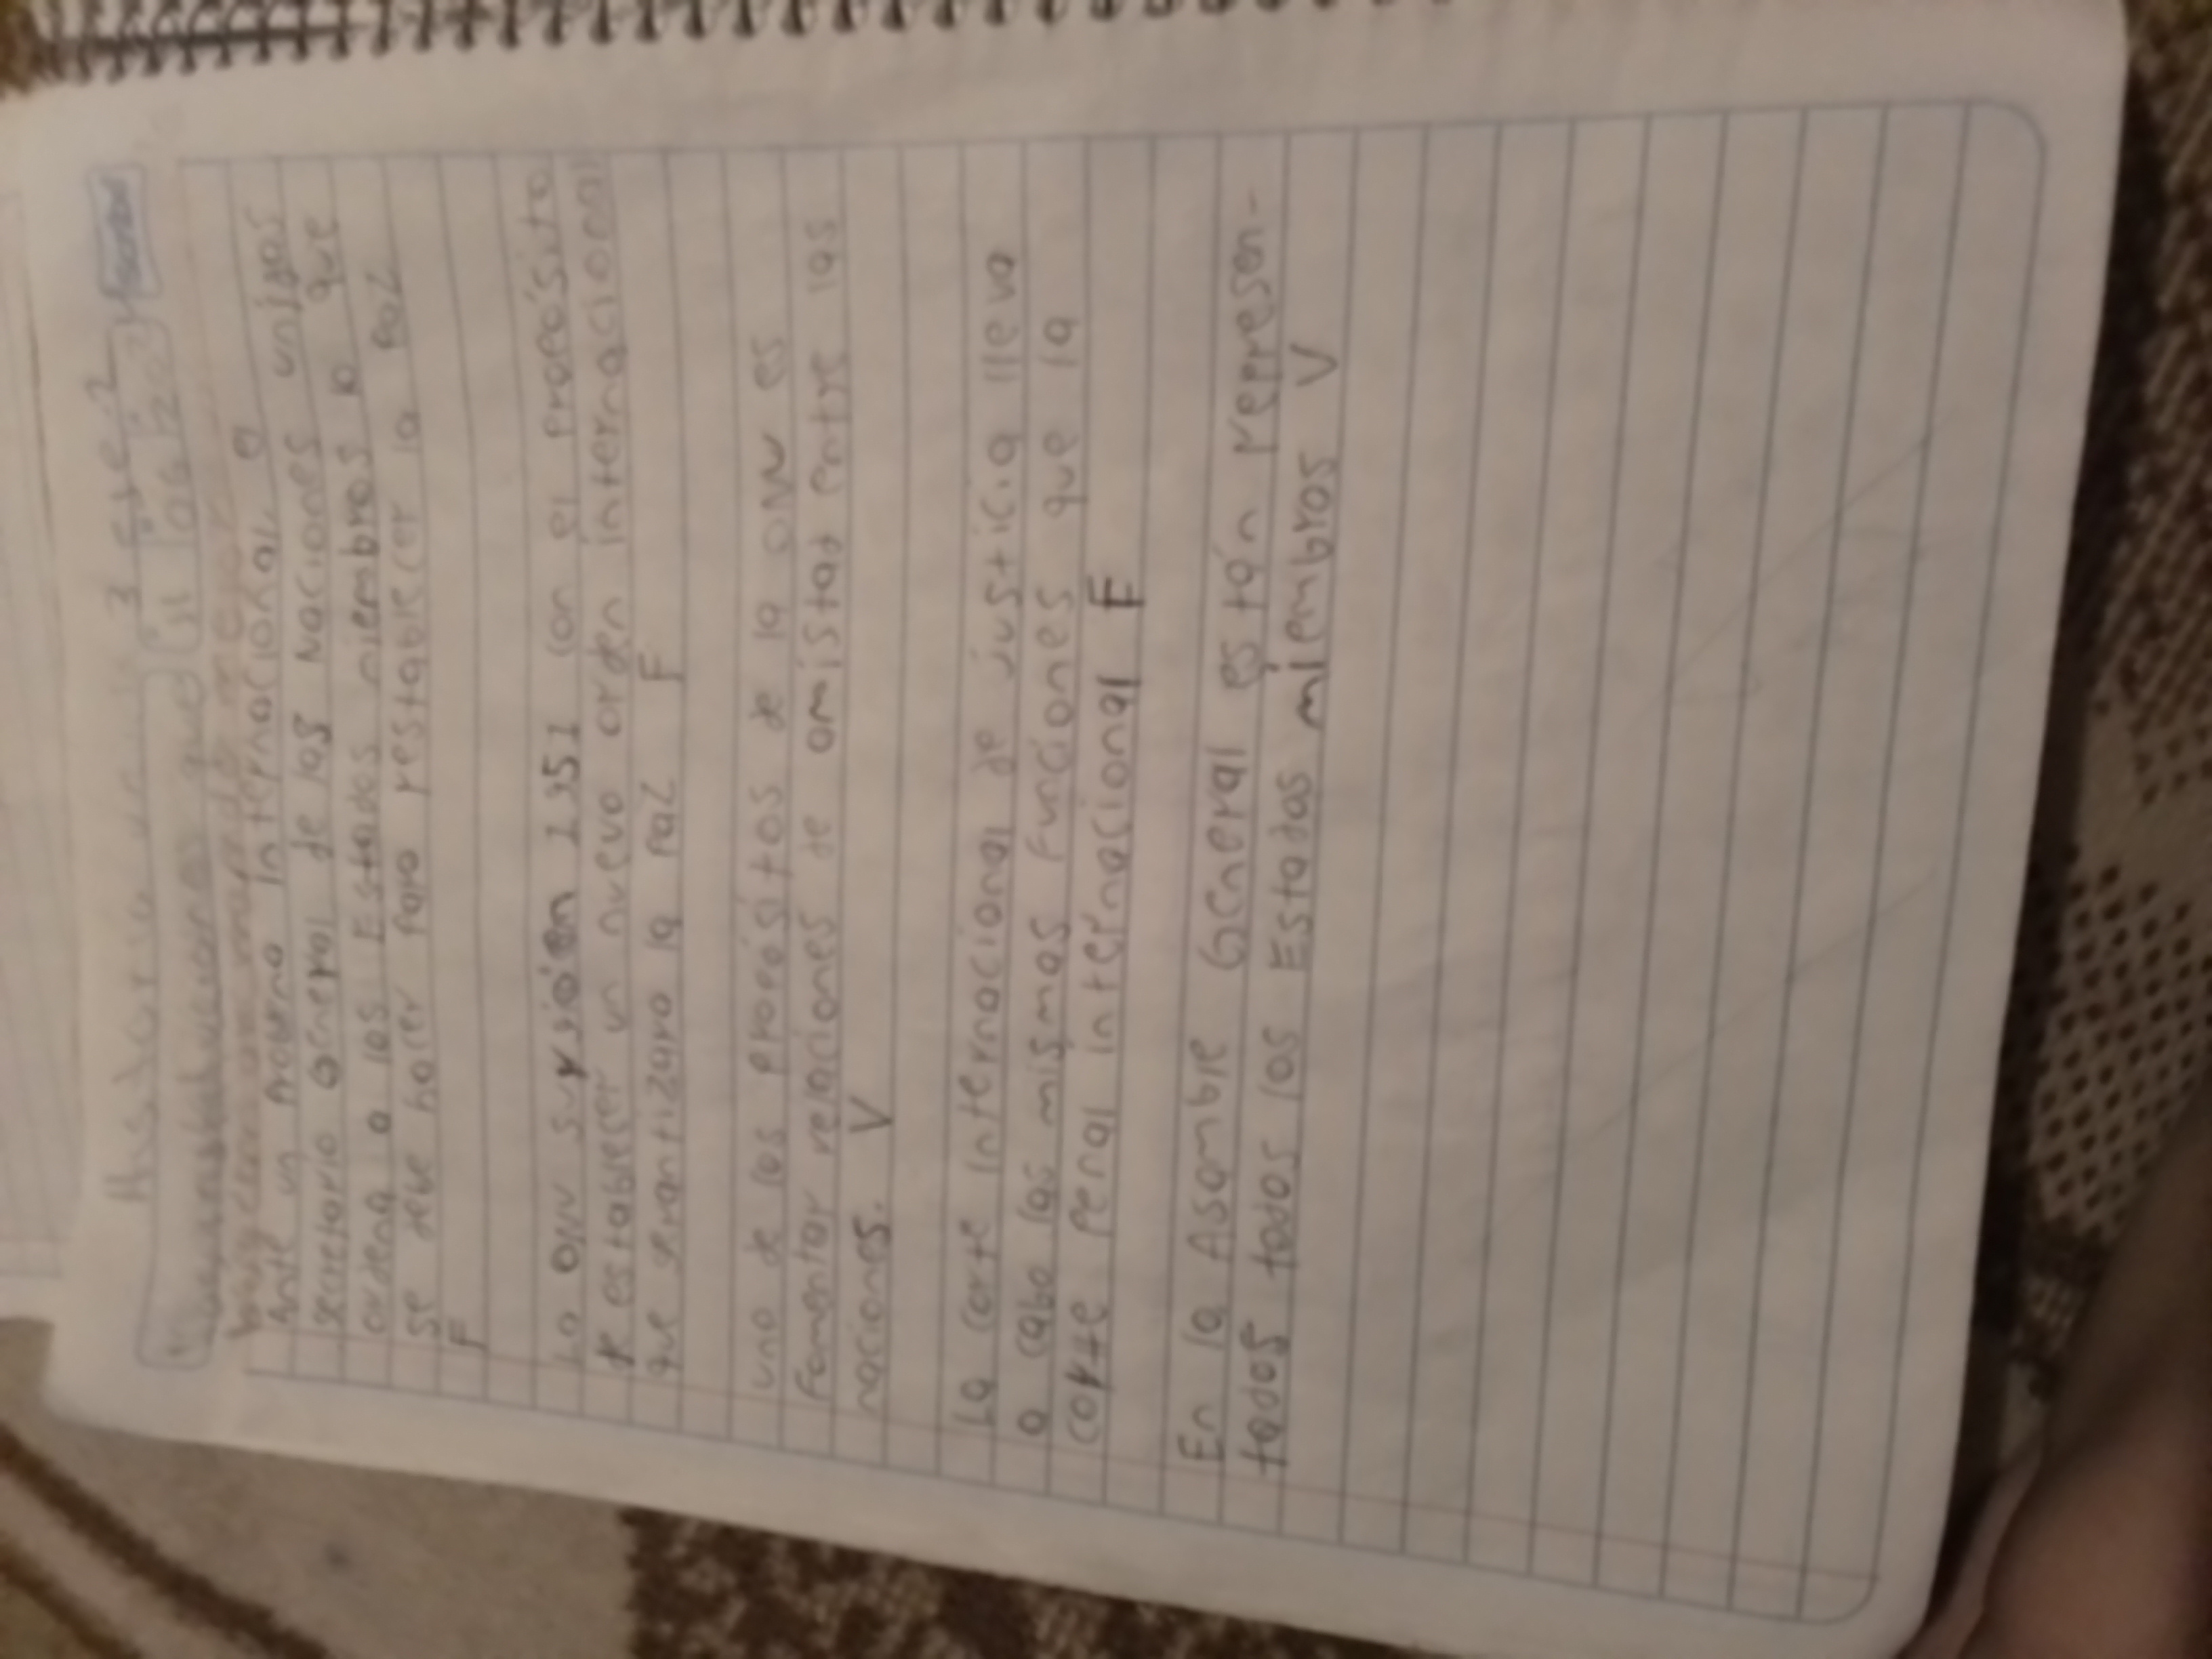 Historia un 3 sue:2
Ante un problema internacional, el
secretario General de las Naciones unidas
ordena a los Estados miembros lo que
se debe hacer para restablecer la paz
F
La ONU surgió en 1951 con el propósito
de establecer un nuevo orden internacional
que garantizara la paz F
uno de los propósitos de la ONU es
Fomentar relaciones de amistad entre las
naciones. V
La corte internacional de justicia lleva
a cabo las mismas funciones que la
corte penal internacional F
En la Asamble General están represen-
tados todos los Estados miembros V